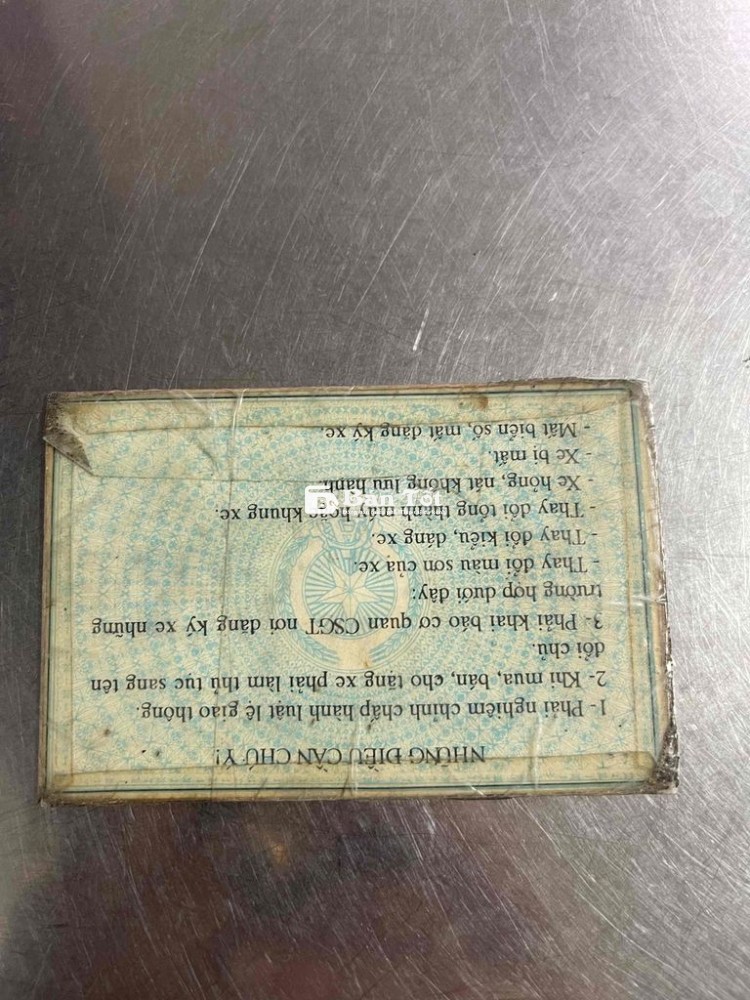 NHỮNG ĐIỀU CẦN CHÚ Ý!
1- Phải nghiêm chỉnh chấp hành luật lệ giao thông.
2- Khi mua, bán, cho tặng xe phải làm thủ tục sang tên
đổi chủ.
3- Phải khai báo cơ quan CSGT nơi đăng ký xe những
trường hợp dưới đây:
- Thay đổi màu sơn của xe.
- Thay đổi kiểu, dáng xe.
- Thay đổi tổng thành máy hoặc khung xe.
- Xe hỏng, nát không lưu hành.
- Xe bị mất.
- Mất biển số, mất đăng ký xe.
Bán Tốt